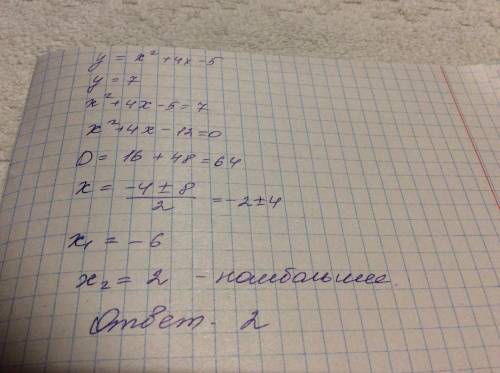 y = x² + 4x - 5
y = 7
x² + 4x - 5 = 7
x² + 4x - 12 = 0
D = 16 + 48 = 64
x = (-4 ± 8)/2 = -2 ± 4
x₁ = -6
x₂ = 2 - наибольшее.
Ответ. 2